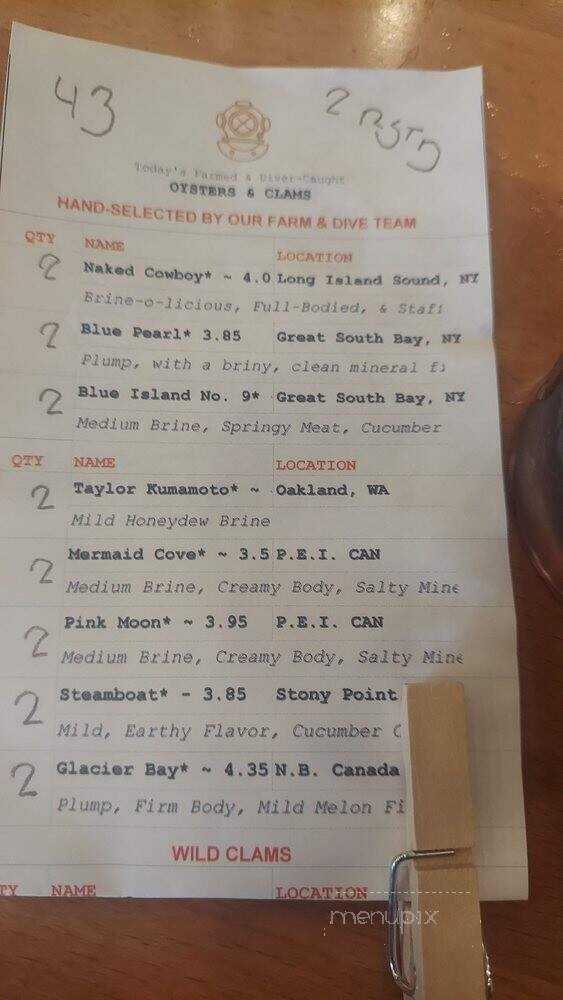 43
2 RSTD
Today's Farmed & Diver-Caught
OYSTERS & CLAMS
HAND-SELECTED BY OUR FARM & DIVE TEAM
QTY NAME LOCATION
2 Naked Cowboy* ~ 4.0 Long Island Sound, NY
Brine-o-licious, Full-Bodied, &
2 Blue Pearl* 3.85 Great South Bay, NY
Plump, with a briny, clean mineral
2 Blue Island No. 9* Great South Bay, NY
Medium Brine, Springy Meat, Cucumber
QTY NAME LOCATION
2 Taylor Kumamoto* ~ Oakland, WA
Mild Honeydew Brine
2 Mermaid Cove* ~ 3.5 P.E.I. CAN
Medium Brine, Creamy Body, Salty Mine
2 Pink Moon* ~ 3.95 P.E.I. CAN
Medium Brine, Creamy Body, Salty Mine
2 Steamboat* - 3.85 Stony Point
Mild, Earthy Flavor, Cucumber
2 Glacier Bay* ~ 4.35 N.B. Canada
Plump, Firm Body, Mild Melon Fi
WILD CLAMS
TY NAME LOCATION
menupix